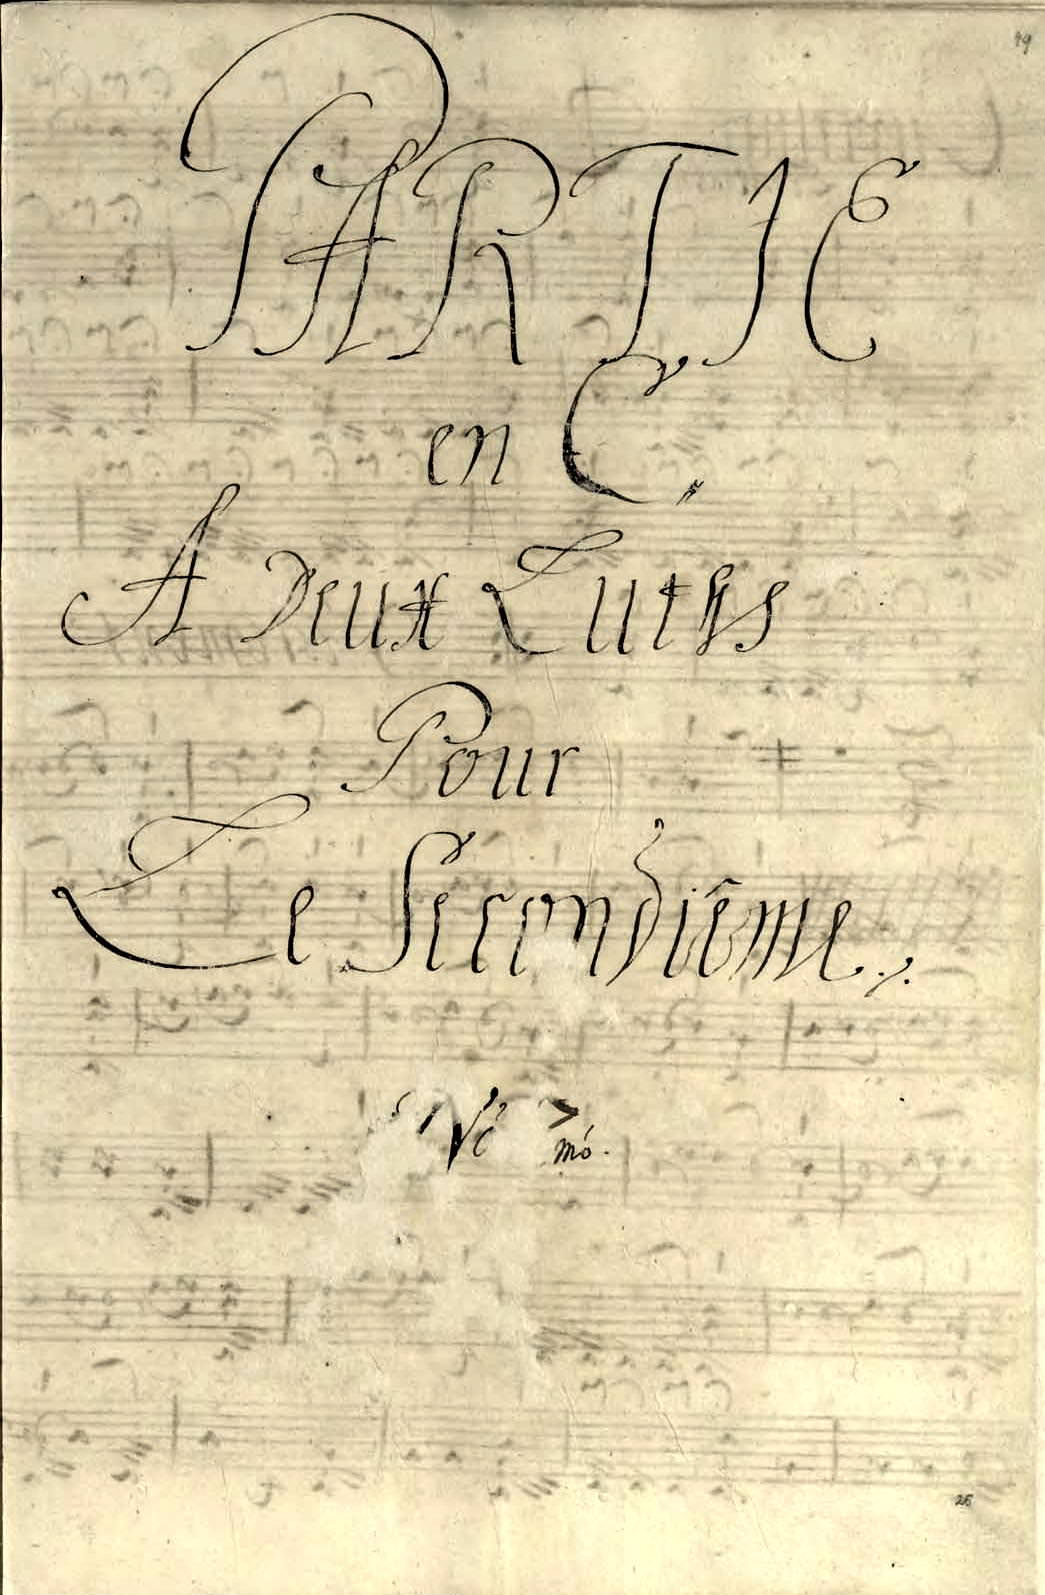 49
PARTIE
en C.
A Deux Luths
Pour
Le Secondiême.
mó.